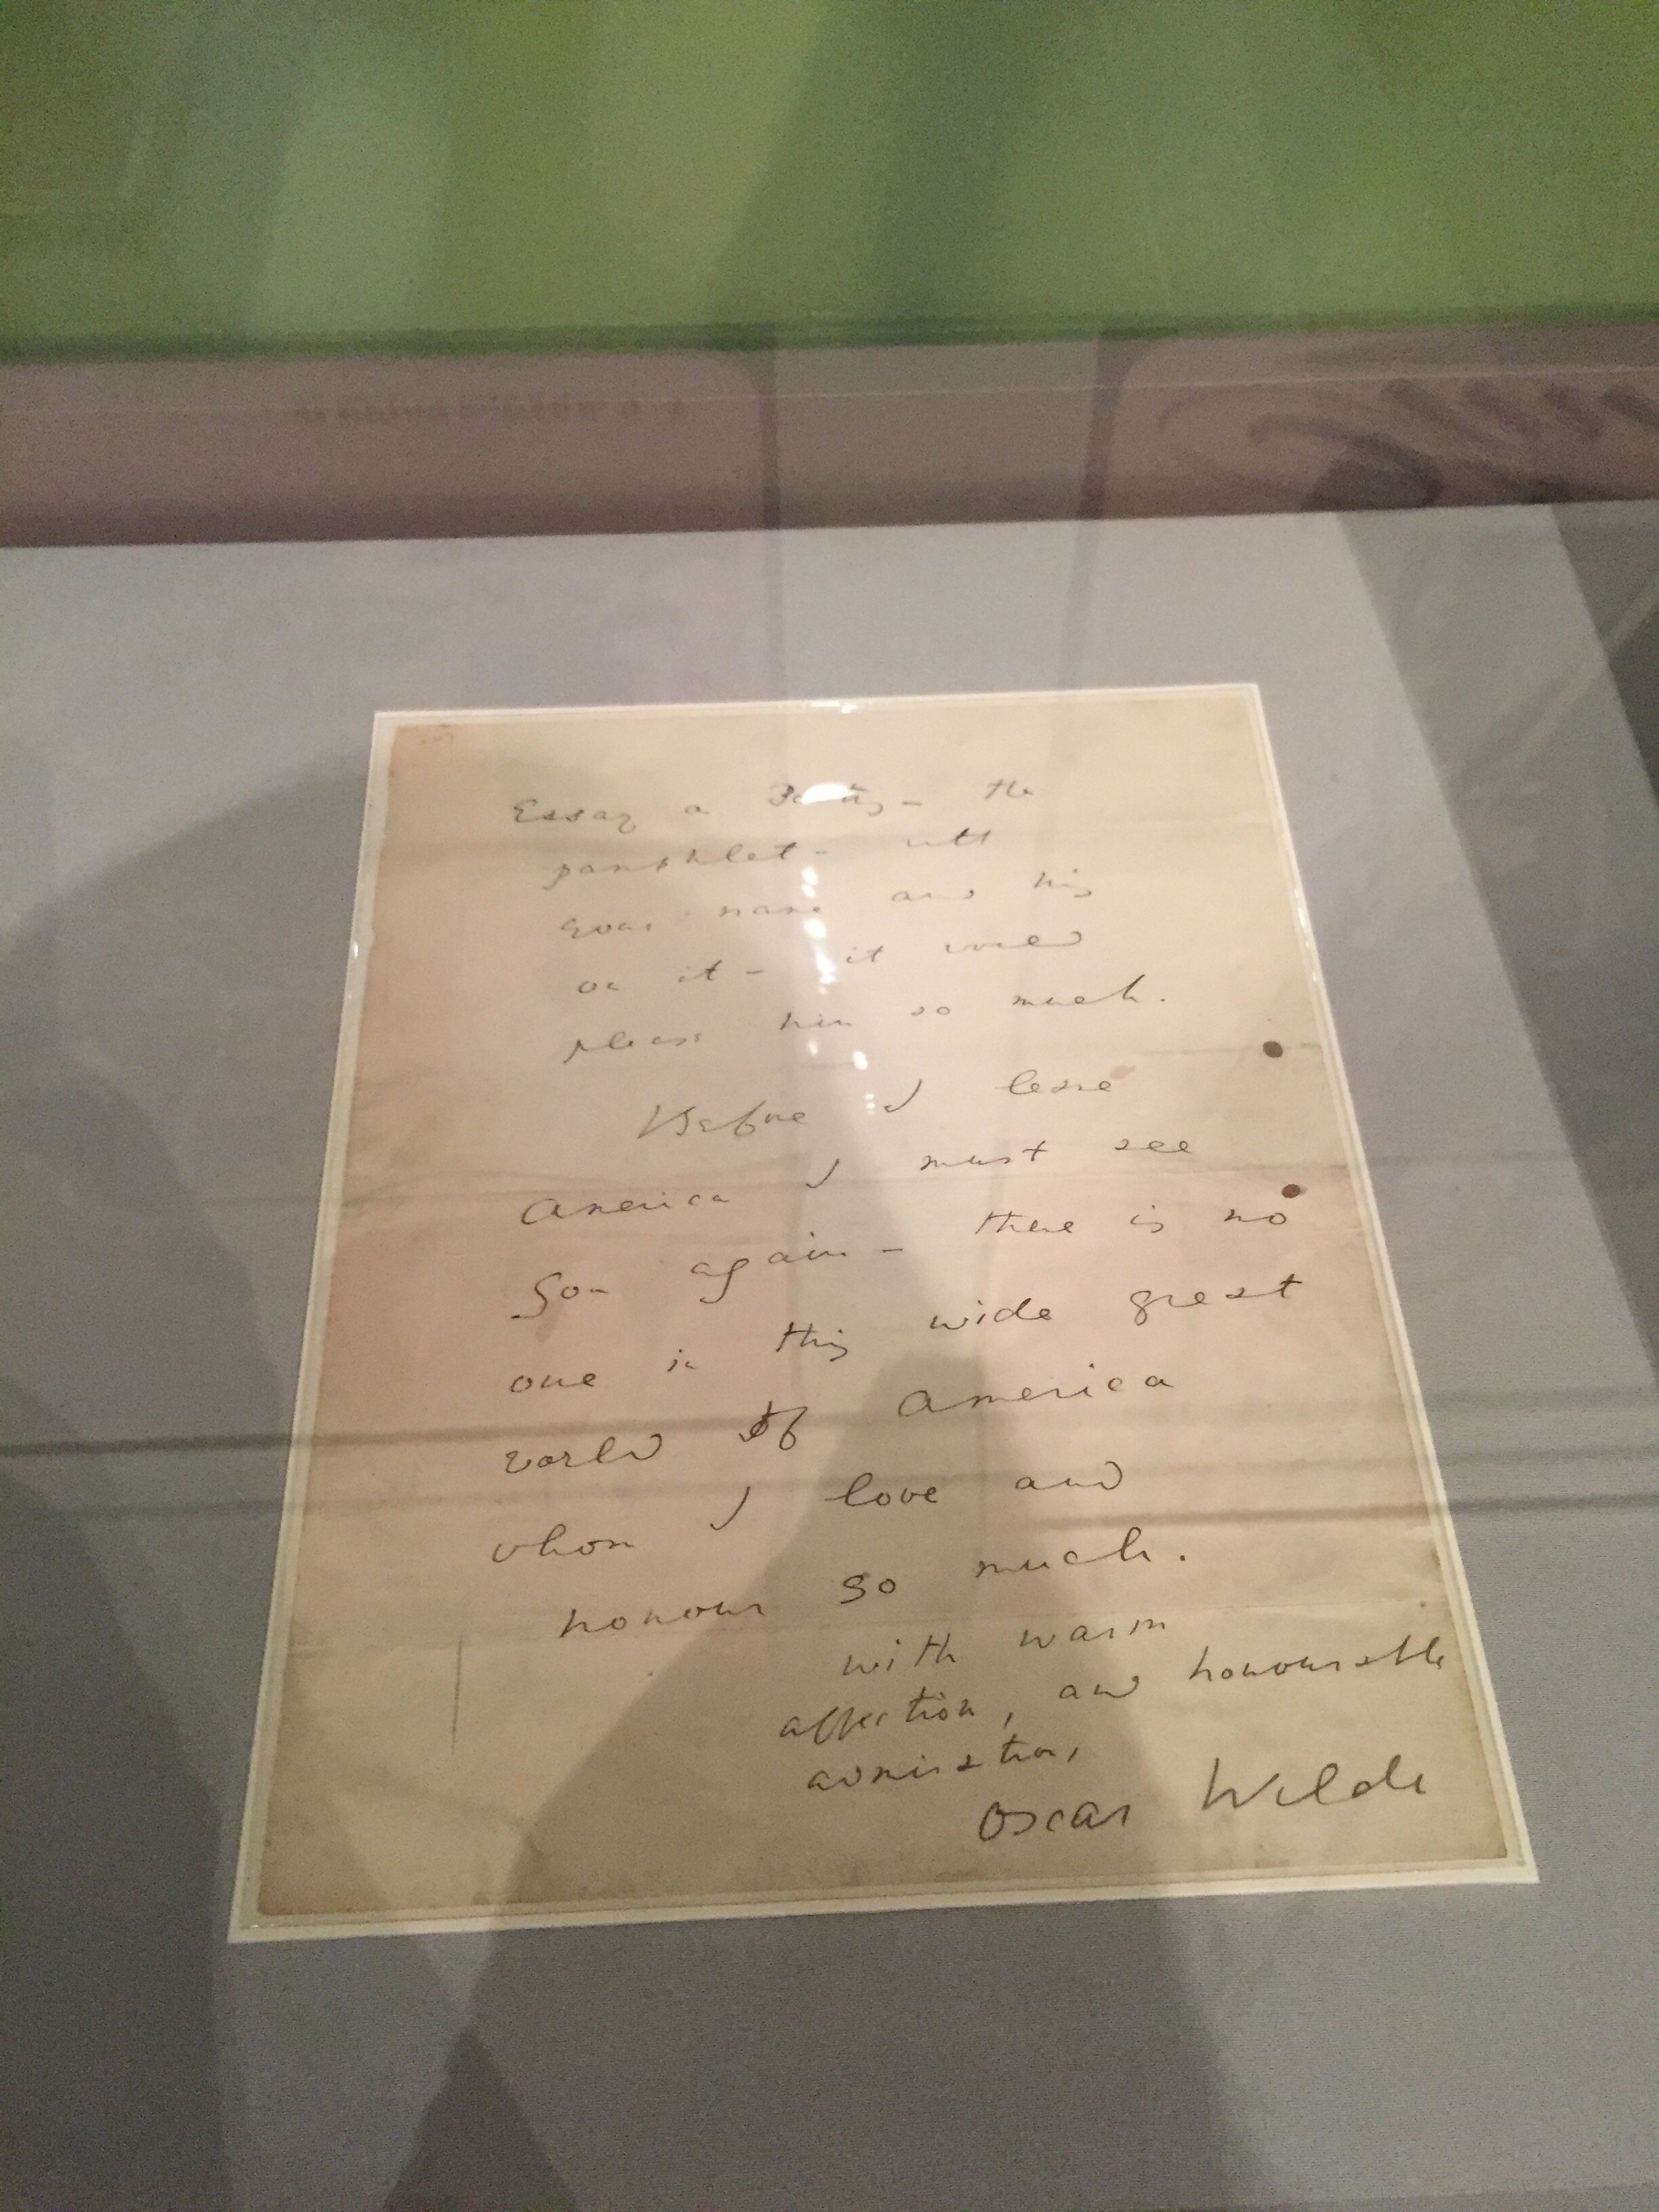 Essay on Poetry - the
pamphlet - with
your name and his
on it - it would
please him so much.
Before I leave
America I must see
you again - there is no
one in this wide great
world of America
whom I love and
honour so much.
with warm
affection, and honourable
admiration,
Oscar Wilde